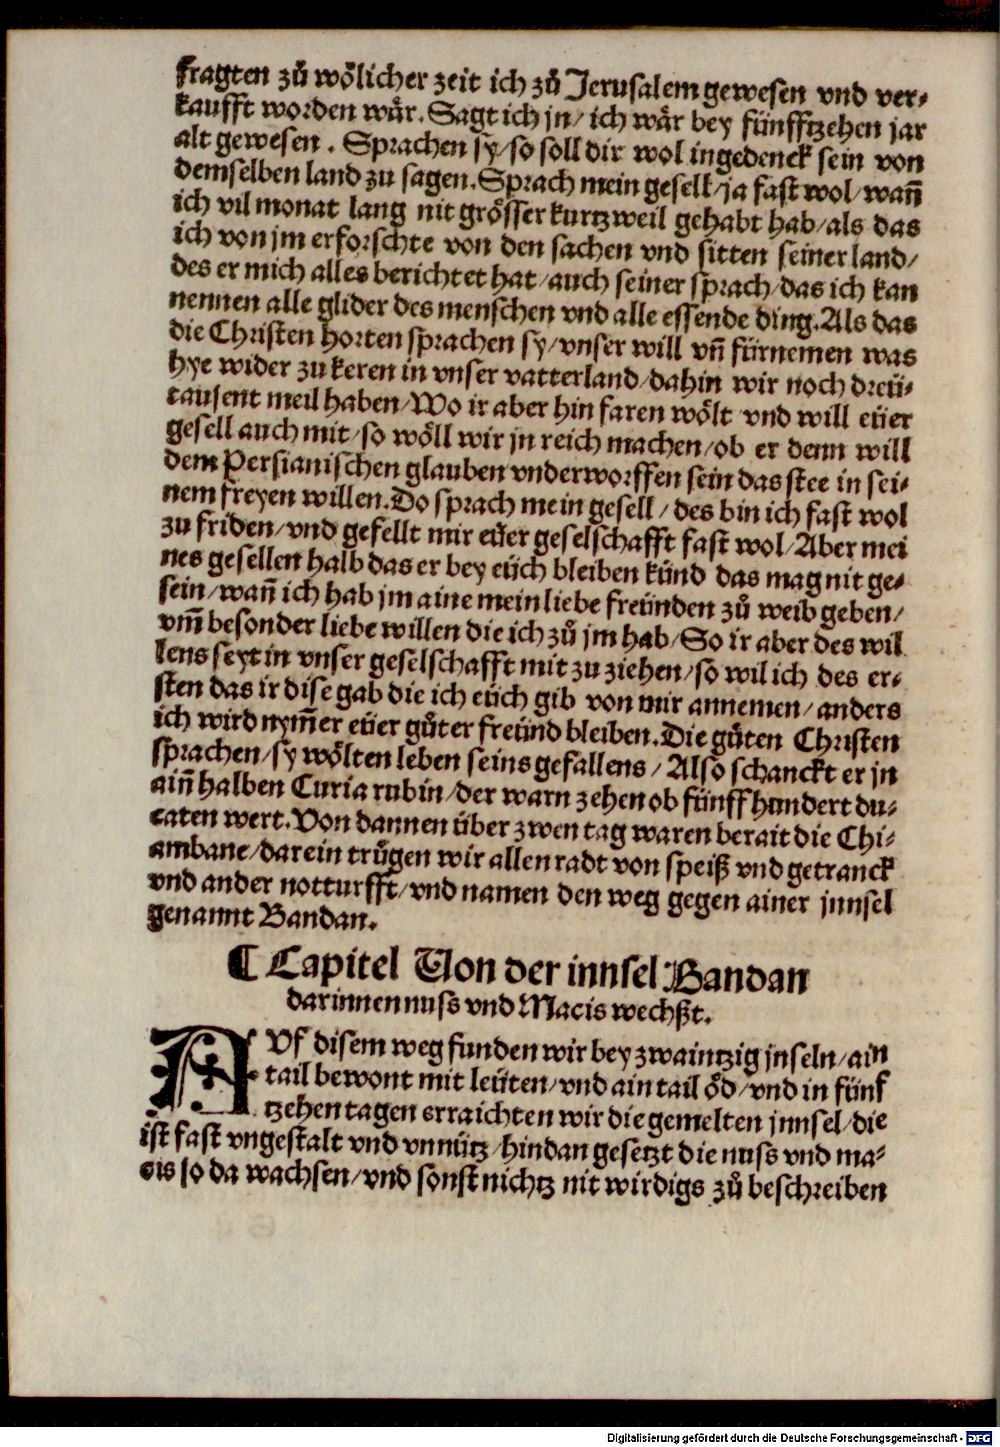 fragten zů wölicher zeit ich zů Jerusalem gewesen vnd ver⸗
kaufft worden wår. Sagt ich jn/ ich wår bey fünfftzehen jar
alt gewesen. Sprachen sy/ so soll dir wol ingedenck sein von
demselben land zu sagen. Sprach mein gesell/ ja fast wol/ wañ
ich vil monat lang nit grösser kurtzweil gehabt hab/ als das
ich von jm erforschte von den sachen vnd sitten seiner land/
des er mich alles berichtet hat/ auch seiner sprach/ das ich kan
nennen alle glider des menschen vnd alle essende ding. Als das
die Christen horten sprachen sy/ vnser will vñ fürnemen was
hye wider zu keren in vnser vatterland/ dahin wir noch dreü⸗
tausent meil haben/ Wo ir aber hin faren wölt vnd will eüer
gesell auch mit/ so wöll wir jn reich machen/ ob er denn will
dem Persianischen glauben vnderworffen sein das stee in sei⸗
nem freyen willen. Do sprach mein gesell/ des bin ich fast wol
zu friden/ vnd gefellt mir eüer geselschafft fast wol/ Aber mei
nes gesellen halb das er bey eüch bleiben künd das mag nit ge⸗
sein/ wañ ich hab jm aine mein liebe freünden zů weib geben/
vm̃ besonder liebe willen die ich zů jm hab/ So ir aber des wil
lens seyt in vnser geselschafft mit zu ziehen/ so wil ich des er⸗
sten das ir dise gab die ich eüch gib von mir annemen/ anders
ich wird nym̃er eüer gůter freünd bleiben. Die gůten Christen
sprachen/ sy wölten leben seins gefallens/ Also schanckt er jn
ain̄ halben Curia rubin/ der warn zehen ob fünffhundert du⸗
caten wert. Von dannen über zwen tag waren berait die Chi⸗
ambane/ darein trůgen wir allen radt von speiß vnd getranck
vnd ander notturfft/ vnd namen den weg gegen ainer jnnsel
genannt Bandan.
¶ Capitel Von der innsel Bandan
darinnen nuss vnd Macis wechßt.
AVf disem weg funden wir bey zwaintzig jnseln/ ain
tail bewont mit leüten/ vnd ain tail öd/ vnd in fünf
tzehen tagen erraichten wir die gemelten jnnsel/ die
ist fast vngestalt vnd vnnütz/ hindan gesetzt die nuss vnd ma⸗
cis so da wachsen/ vnd sonst nichtz nit wirdigs zů beschreiben
Digitalisierung gefördert durch die Deutsche Forschungsgemeinschaft - DFG